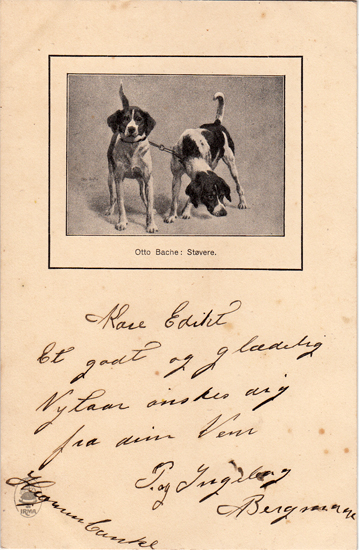 Otto Bache: Støvere.
Kære Edikt
Et godt og glædelig
Nytaar ønskes dig
fra din Ven
P. og Ingeborg
Bergmann
IRMA